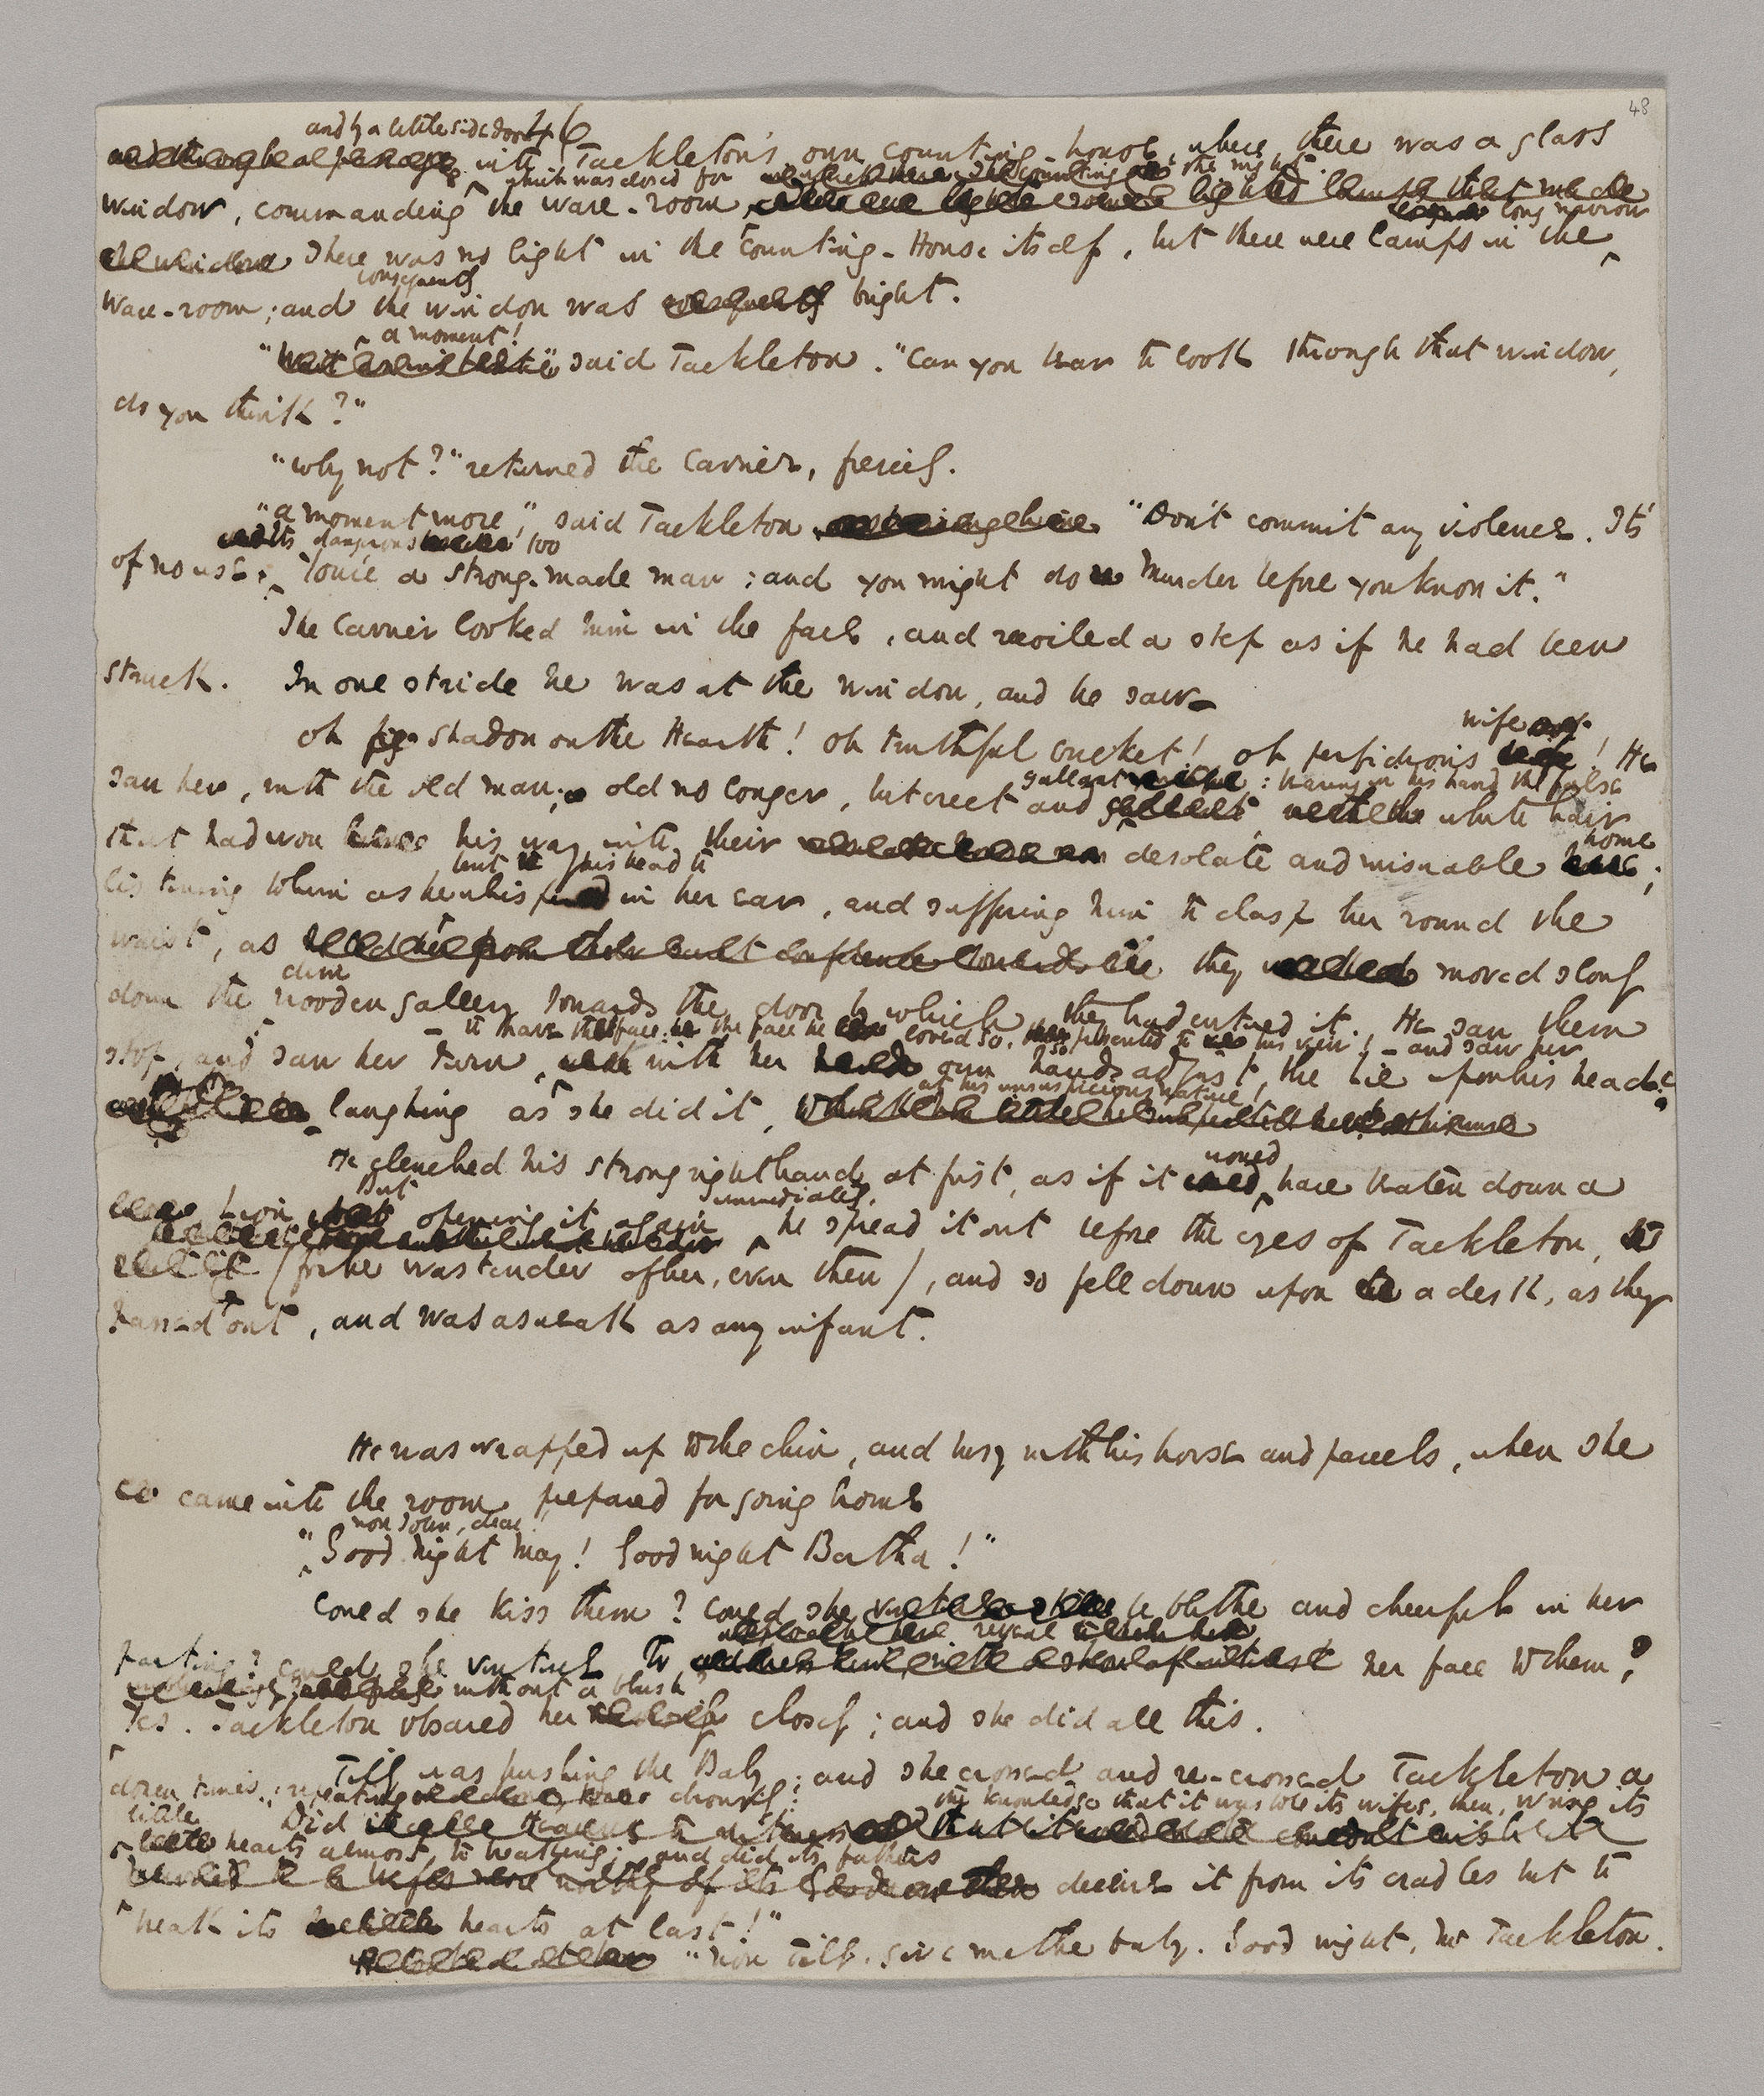 48
46
and by a little side door
into Tackleton's own counting-house, where there was a glass
which was closed for the night.
window, commanding the ware-room,
long narrow
There was no light in the Counting-House itself, but there were lamps in the
consequently
ware-room; and the window was bright.
a moment!
" said Tackleton. "Can you bear to look through that window,
do you think?"
"Why not?" returned the Carrier, fiercely.
"a moment more," said Tackleton "Don't commit any violence. It's
It's dangerous too
of no use. You're a strong-made man; and you might do Murder before you know it."
The Carrier looked him in the face, and recoiled a step as if he had been
struck. In one stride he was at the window, and he saw—
wife
oh Shadow on the Hearth! oh truthful cricket! oh perfidious ! He
gallant : bearing in his hand the false
saw her, with the old man; old no longer, but erect and white hair
home
that had won his way into their desolate and miserable ;
bent his head to
listening to him as he whispered in her ear, and suffering him to clasp her round the
waist, as they moved slowly
dim
down the wooden gallery towards the door by which they had entered it. He saw them
— to have the face the face he loved so, so presented to his view! — and saw her
stop, and saw her turn with her own hands adjust, the lie upon his head:
at his unsuspicious nature!
laughing as she did it,
would
He clenched his strong right hand at first, as if it have beaten down a
But immediately.
lion opening it again he spread it out before the eyes of Tackleton,
(for he was tender of her, even then), and so fell down upon a desk, as they
passed out, and was as weak as any infant.
He was wrapped up to the chin, and busy with his horse and parcels, when she
came into the room prepared for going home
now John, dear!
"Good night May! Good night Bertha!"
Could she kiss them? Could she be blithe and cheerful in her
reveal
parting? Could she venture to her face to them?
without a blush
Yes. Tackleton observed her closely; and she did all this.
Tilly was hushing the Baby; and she crossed and re-crossed Tackleton a
dozen times, repeating drowsily:
the knowledge that it was to be its wifes, then, wring its
little Did
hearts almost to breaking; and did its fathers
deceive it from its cradles but to
break its hearts at last!"
"Now Tilly, give me the baby. Good night, Mr Tackleton.